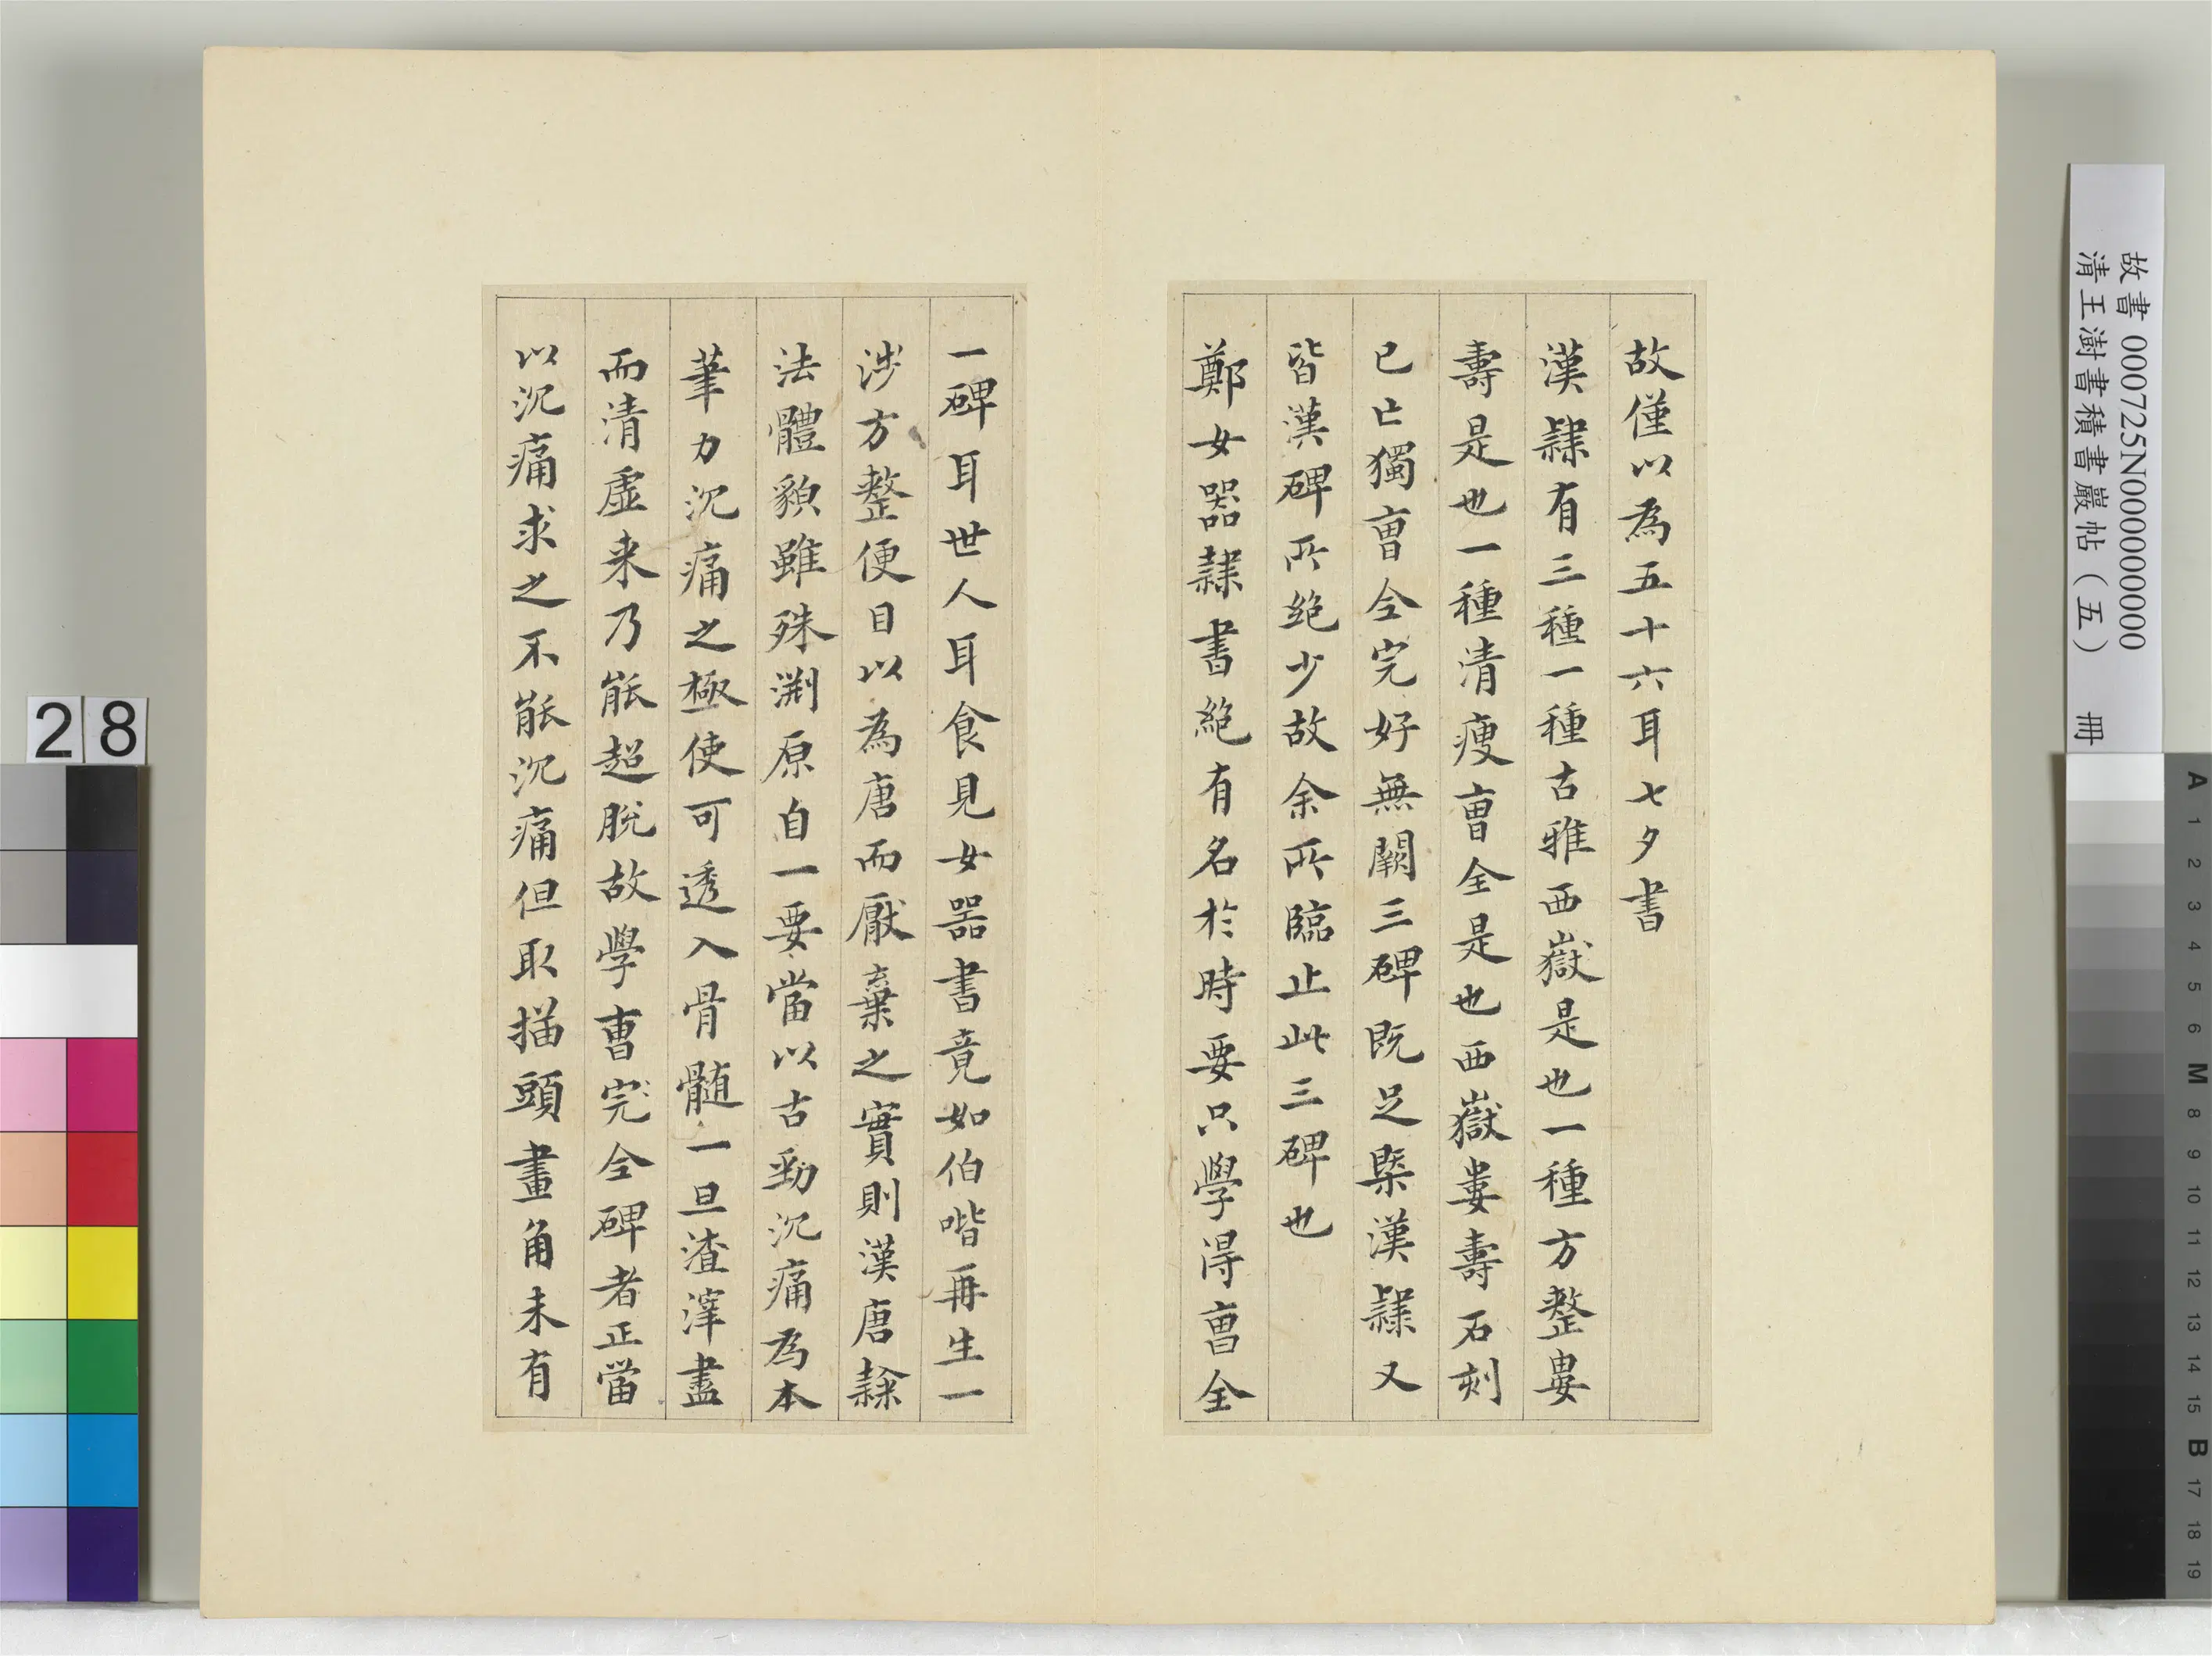 故僅以為五十六耳七夕書
漢隸有三種一種古雅西嶽是也一種方整婁
壽是也一種清瘦曹全是也西嶽婁壽石刻
已亡獨曹全完好無闕三碑既足槩漢隸又
皆漢碑所絕少故余所臨止此三碑也
鄭女器隸書絕有名於時要只學得曹全
一碑耳世人耳食見女器書竟如伯喈再生一
涉方整便目以為唐而厭棄之實則漢唐隸
法體貌雖殊淵原自一要當以古勁沉痛為本
筆力沉痛之極使可透入骨髓一旦渣滓盡
而清虛来乃能超脫故學曹完全碑者正當
以沉痛求之不能沉痛但取描頭畫角未有
故書 000725N000000000
清王澍書積書巖帖（五） 冊
28
A 1 2 3 4 5 6 M 8 9 10 11 12 13 14 15 B 17 18 19